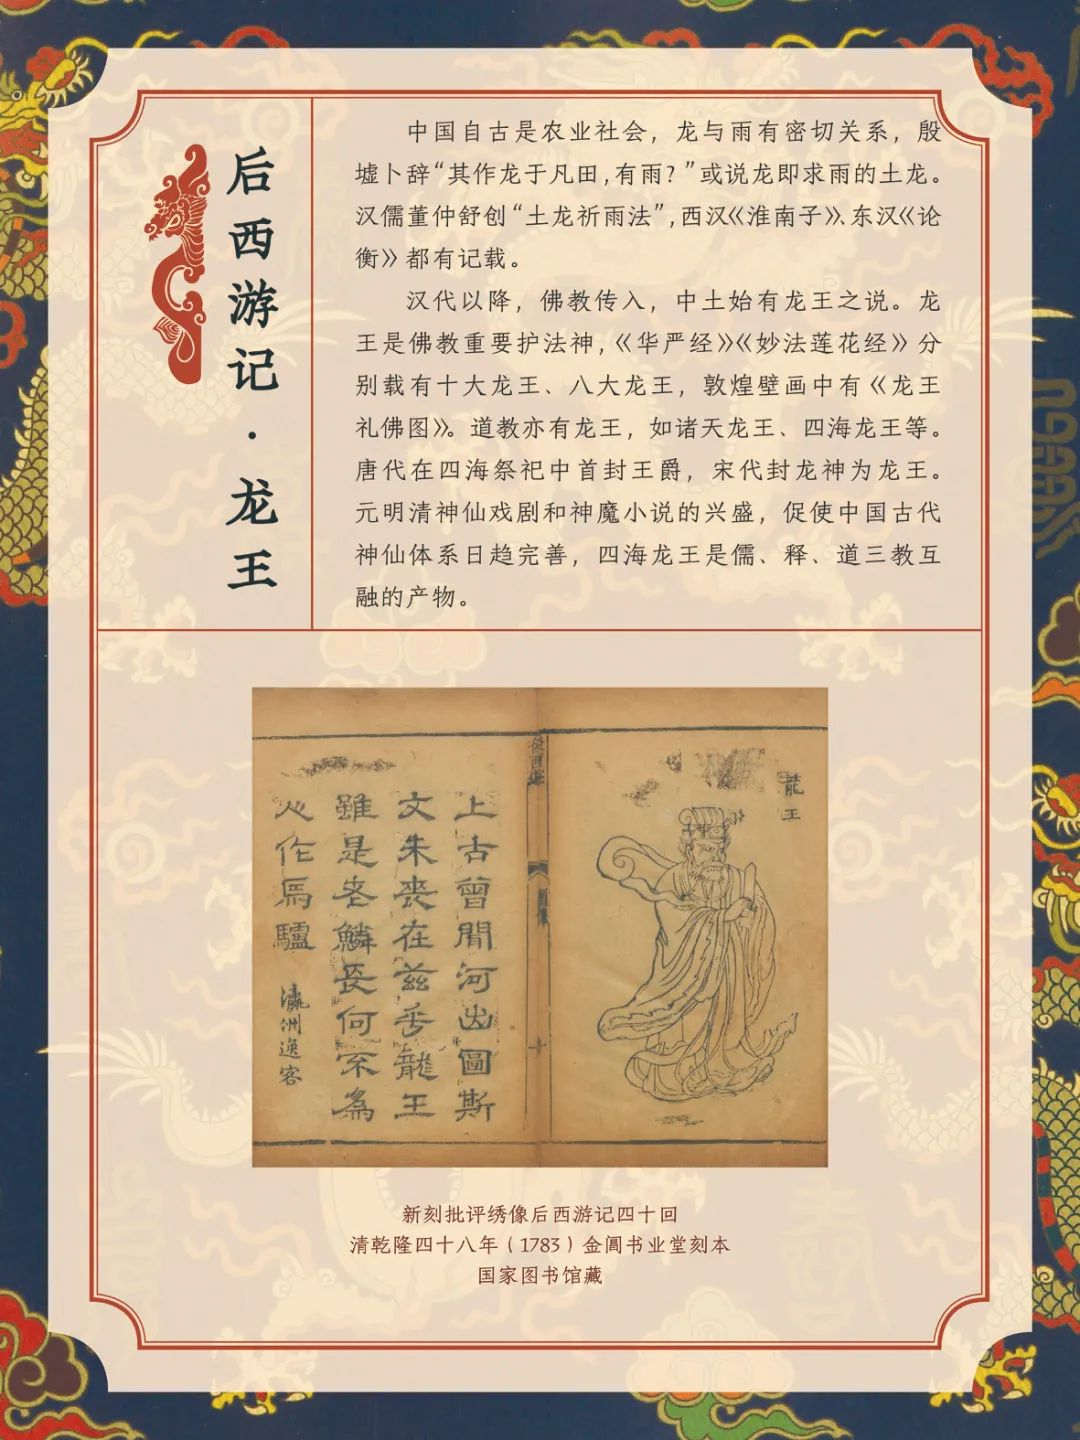 后西游记·龙王
中国自古是农业社会，龙与雨有密切关系，殷
墟卜辞“其作龙于凡田，有雨？”或说龙即求雨的土龙。
汉儒董仲舒创“土龙祈雨法”，西汉《淮南子》、东汉《论
衡》都有记载。
汉代以降，佛教传入，中土始有龙王之说。龙
王是佛教重要护法神，《华严经》《妙法莲花经》分
别载有十大龙王、八大龙王，敦煌壁画中有《龙王
礼佛图》。道教亦有龙王，如诸天龙王、四海龙王等。
唐代在四海祭祀中首封王爵，宋代封龙神为龙王。
元明清神仙戏剧和神魔小说的兴盛，促使中国古代
神仙体系日趋完善，四海龙王是儒、释、道三教互
融的产物。
龍王
上古曾聞河出圖斯
文未喪在兹乎龍王
雖是老鱗長何不為
心作馬驢
瀛洲逸客
後西遊
十
新刻批评绣像后西游记四十回
清乾隆四十八年（1783）金阊书业堂刻本
国家图书馆藏